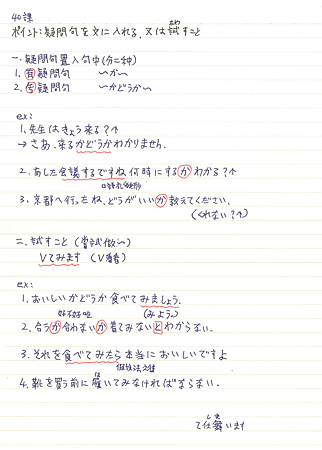 40課
ポイント:疑問句を文に入れる、又は試すこと
一、疑問句置入句中(分二種)
1. 有疑問句 〜か〜
2. 否疑問句 〜かどうか〜
ex:
1. 先生はきょう来る?↑
→ さあ、来るかどうかわかりません。
2. あした会議するですね 何時にするかわかる?↑
3. 京都へ行ったね、どうがいいか教えてください。
(くれない?↑)
二、試すこと (嘗試做〜)
Vてみます (V看看)
ex:
1. おいしいかどうか食べてみましょう。
好不好吃 (みよう。)
2. 合うか合わないか着てみないとわからない。
3. それを食べてみたら本当においしいですよ
假設法
4. 靴を買う前に履いてみなければならない。
て仕舞います